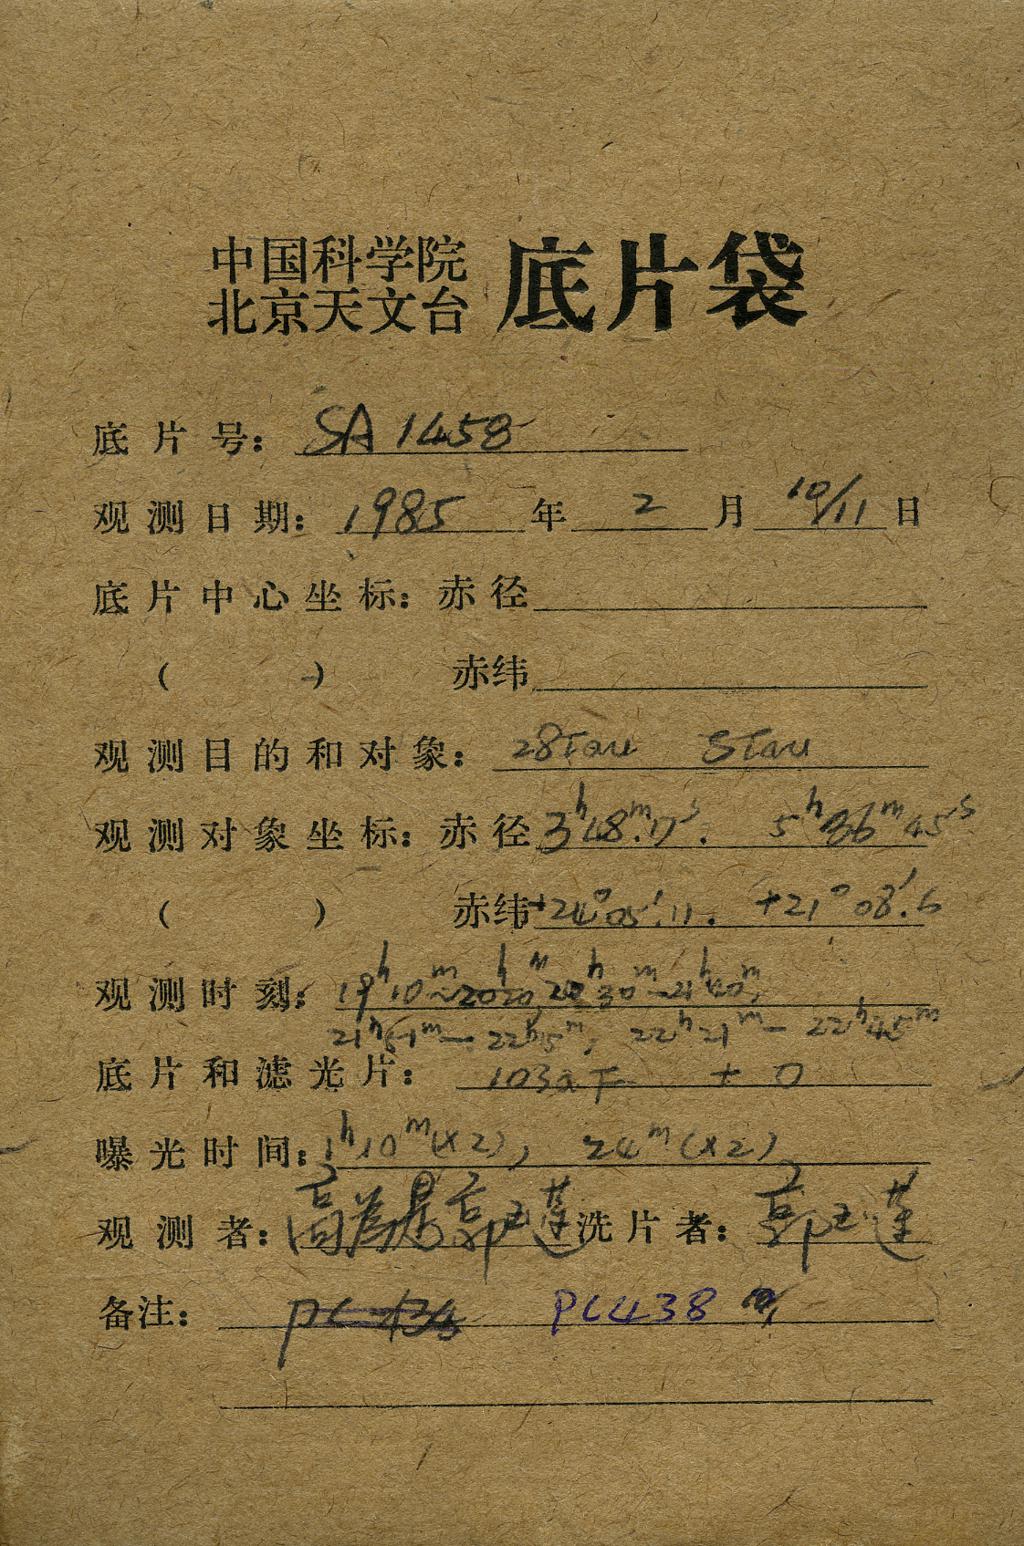 中国科学院
北京天文台 底片袋
底片号: SA 1458
观测日期: 1985 年 2 月 10/11 日
底片中心坐标: 赤径
( ) 赤纬
观测目的和对象: 28Tau STau
观测对象坐标: 赤径 3h48m.17s. 5h36m45s
( ) 赤纬 +24°05′.11. +21°08′.6
观测时刻: 19h10m~20h20m, 20h30m~21h40m,
21h51m — 22h15m, 22h21m — 22h45m
底片和滤光片: 103aF + 0
曝光时间: 1h10m(×2), 24m(×2)
观测者: 高 郭玉莲 洗片者: 郭玉莲
备注: PC438